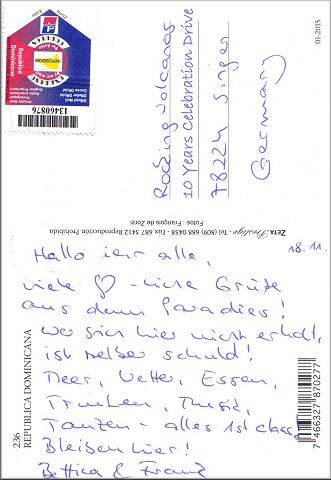 Hallo ihr alle,
18.11.
viele ♡-liche Grüße
aus dem Paradies!
Wer sich hier nicht erholt,
ist selber schuld!
Meer, Wetter, Essen,
Trinken, Musik,
Tanzen - alles 1st class,
Bleiben hier!
Bettica & Franz
Rocking Volcanos
10 Years Celebration Drive
78224 Singen
Germany
ZETA Prestige - Tel (809) 688 0458 - Fax 687 3412 Reproducción Prohibida
Fotos : François de Zorzi
01-2015
236
REPUBLICA DOMINICANA
7 466327 870277
República
Dominicana
INPOSDOM
13460876